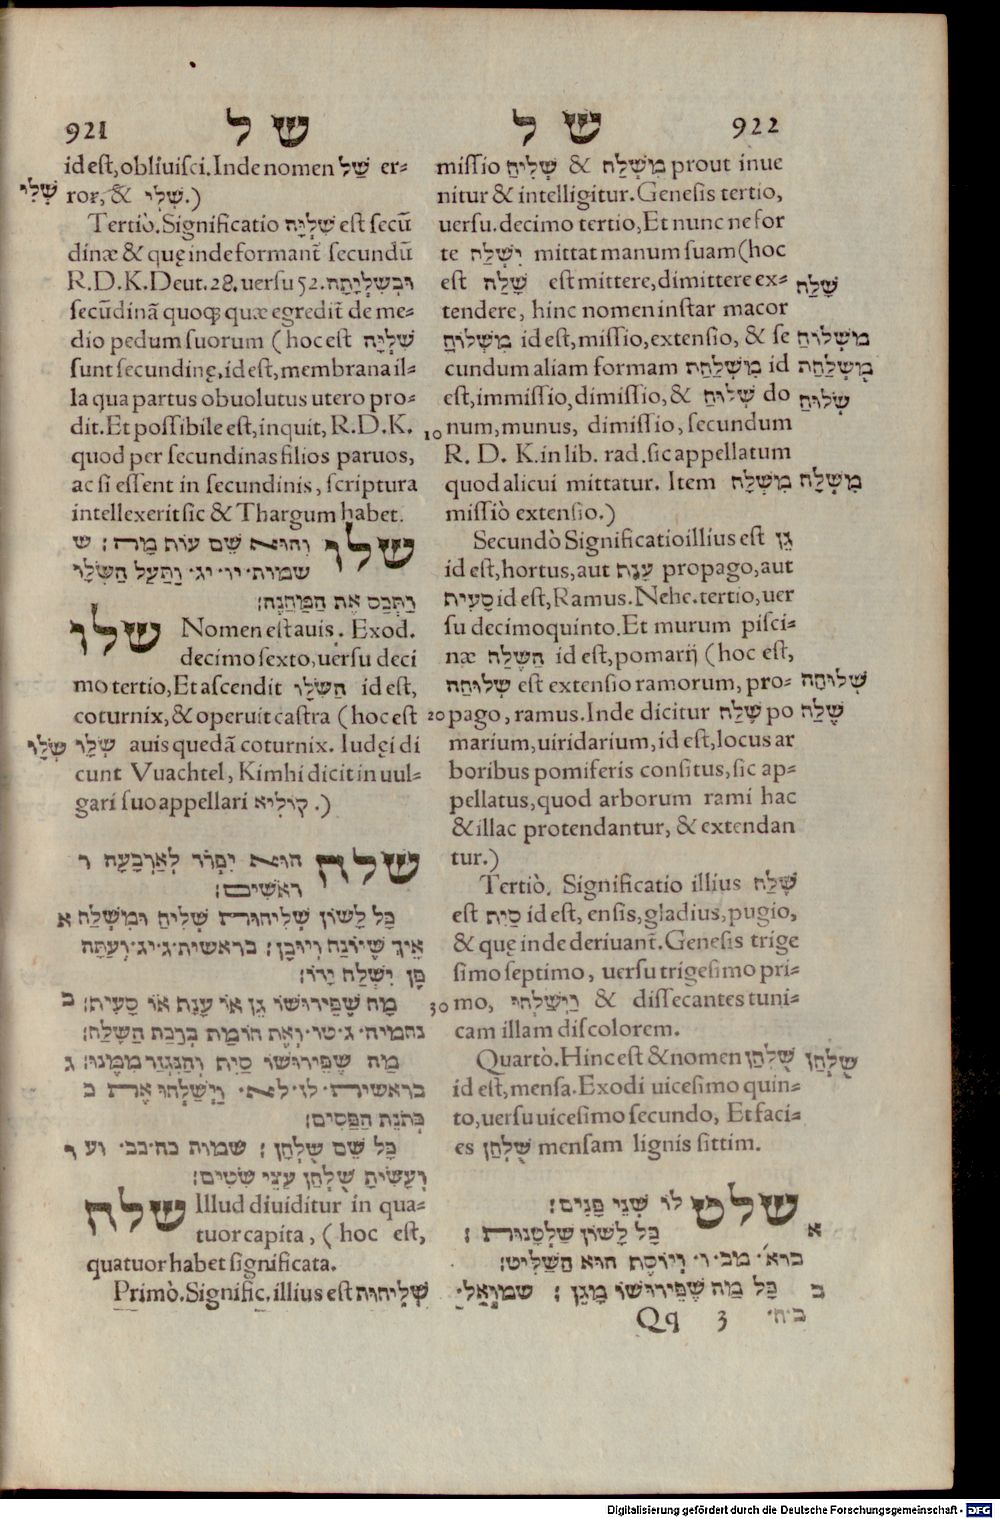 921 של
של 922
id est, obliuisci. Inde nomen שַׁל er-
שְׁלִי ror, & שְׁלִי.)
Tertiò. Significatio שִׁלְיָה est secū
dinæ & quę inde formant̄ secundū
R.D.K. Deut. 28. uersu 52. וּבְשִׁלְיָתָהּ
secūdinā quoq; quæ egredit̄ de me-
dio pedum suorum (hoc est שִׁלְיָה
sunt secundinę, id est, membrana il-
la qua partus obuolutus utero pro-
dit. Et possibile est, inquit, R.D.K.
quod per secundinas filios paruos,
ac si essent in secundinis, scriptura
intellexerit sic & Thargum habet.
שלו וְהוּא שֵׁם עוֹף מָה: ש
שמות יו יג וַתַּעַל הַשְּׂלָו
וַתְּכַס אֶת הַמַּחֲנֶה:
שלו Nomen est auis. Exod.
decimo sexto, uersu deci
mo tertio, Et ascendit הַשְּׂלָו id est,
coturnix, & operuit castra (hoc est
שְׂלָו שְׂלָו auis quedā coturnix. Iudęi di
cunt Vuachtel, Kimhi dicit in uul-
gari suo appellari קוליא.)
שלח הוּא יִפָּרֵד לְאַרְבָּעָה ר
רָאשִׁים:
כָּל לָשׁוֹן שְׁלִיחוּת שְׁלִיחַ וּמִשְׁלָח א
אֵיךְ שֶׁיִּזְנַח וְיוּבָן: בראשית ג יג וְעַתָּה
פֶּן יִשְׁלַח יָדוֹ:
מַה שֶּׁפֵּירוּשׁוֹ גַן אוֹ עָנָף אוֹ סָעִיף: ב
נחמיה ג טו וְאֶת חוֹמַת בְּרֵכַת הַשֶּׁלַח:
מַה שֶּׁפֵּירוּשׁוֹ סַיִף וְהַנִּגְזָר מִמֶּנּוּ: ג
בראשית לז לא וַיְשַׁלְּחוּ אֶת כ
כְּתֹנֶת הַפַּסִּים:
כָּל שֵׁם שֻׁלְחָן: שמות כה כג וע ד
וְעָשִׂיתָ שֻׁלְחָן עֲצֵי שִׁטִּים:
שלח Illud diuiditur in qua-
tuor capita, (hoc est,
quatuor habet significata.
Primò. Signific. illius est שְׁלִיחוּת
missio שְׁלִיחַ & מִשְׁלָח prout inue
nitur & intelligitur. Genesis tertio,
uersu. decimo tertio, Et nunc ne for
te יִשְׁלַח mittat manum suam (hoc
est שָׁלַח est mittere, dimittere ex- שָׁלַח
tendere, hinc nomen instar macor
מִשְׁלוֹחַ id est, missio, extensio, & se מִשְׁלוֹחַ
cundum aliam formam מִשְׁלַחַת id מִשְׁלַחַת
est, immissio, dimissio, & שִׁלּוּחַ do שִׁלּוּחַ
10 num, munus, dimissio, secundum
R. D. K. in lib. rad. sic appellatum
quod alicui mittatur. Item מִשְׁלָח מִשְׁלָח
missiò extensio.)
Secundò Significatio illius est גַן
id est, hortus, aut עָנָף propago, aut
סָעִיף id est, Ramus. Nehe. tertio, uer
su decimoquinto. Et murum pisci-
næ הַשֶּׁלַח id est, pomarij (hoc est,
שְׁלוּחָה est extensio ramorum, pro- שְׁלוּחָה
20 pago, ramus. Inde dicitur שֶׁלַח po שֶׁלַח
marium, uiridarium, id est, locus ar
boribus pomiferis consitus, sic ap-
pellatus, quod arborum rami hac
& illac protendantur, & extendan
tur.)
Tertiò. Significatio illius שֶׁלַח
est סַיִף id est, ensis, gladius, pugio,
& quę inde deriuant̄. Genesis trige
simo septimo, uersu trigesimo pri-
30 mo, וַיְשַׁלְּחוּ & dissecantes tuni-
cam illam discolorem.
Quartò. Hinc est & nomen שֻׁלְחָן שֻׁלְחָן
id est, mensa. Exodi uicesimo quin-
to, uersu uicesimo secundo, Et faci-
es שֻׁלְחָן mensam lignis sittim.
שלט לוֹ שְׁנֵי פָּנִים:
כָּל לָשׁוֹן שַׁלְטָנוּת: א
ברא מב ו וְיוֹסֵף הוּא הַשַּׁלִּיט:
כָּל מַה שֶּׁפֵּירוּשׁוֹ מָגֵן: שמואל ב
ב ח
Qq 3
Digitalisierung gefördert durch die Deutsche Forschungsgemeinschaft - DFG